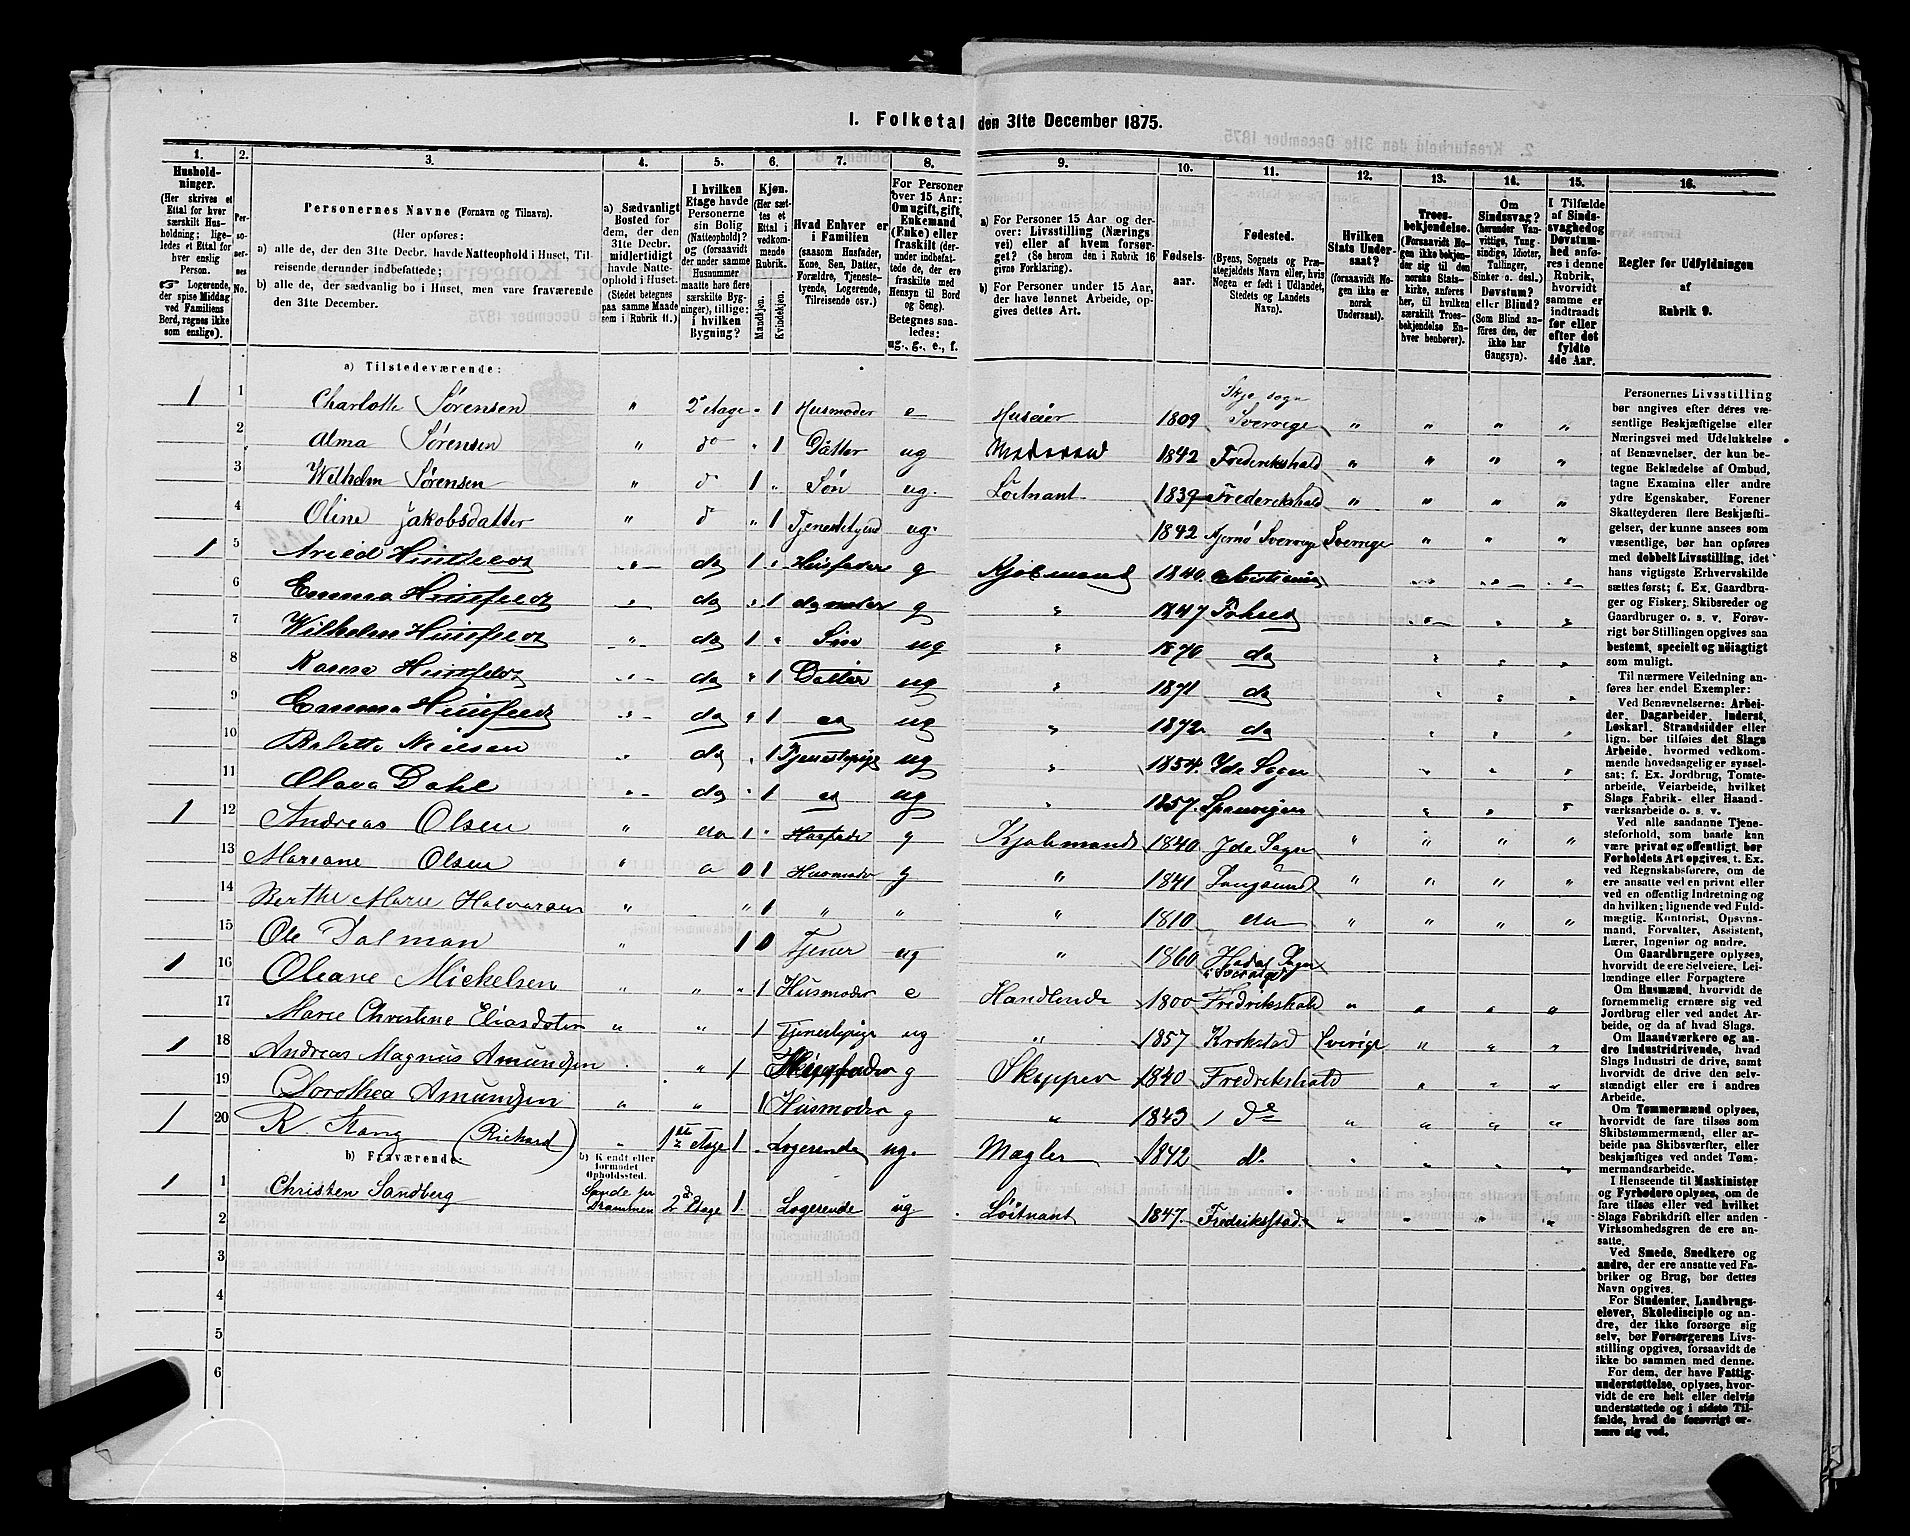 1. Folketal den 31te December 1875.
1. 2. 3. 4. 5. 6. 7. 8. 9. 10. 11. 12. 13. 14. 15. 16.
Hushold-
ninger.
(Her skrives et
Ettal for hver
særskilt Hus-
holdning; lige-
ledes et Ettal for
hver enslig
Person.
Logerende,
der spise Middag
ved Familiens
Bord, regnes ikke
som enslige).
Per-
so-
ner-
nes
No.
Personernes Navne (Fornavn og Tilnavn).
(Her opføres:
a) alle de, der den 31te Decbr. havde Natteophold i Huset, Til-
reisende derunder indbefattede;
b) alle de, der sædvanlig bo i Huset, men vare fraværende
den 31te December.
a) Sædvanligt
Bosted for
dem, der den
31te Decbr.
midlertidigt
havde Natte-
ophold i Huset.
(Stedet betegnes
paa samme Maade
som i Rubrik 11.)
I hvilken
Etage havde
Personerne
sin Bolig
(Natteophold)?
(forsaavidt
der under samme
Husnummer
maatte høre flere
særskilte Byg-
ninger), tillige:
i hvilken
Bygning?
Kjøn.
(Her sæt-
tes et
Ettal i
vedkom-
mende
Rubrik.
Mandkjøn.
Kvindekjøn.
Hvad Enhver er
i Familien
(saasom Husfader,
Kone, Søn, Datter,
Forældre, Tjeneste-
tyende, Logerende,
Tilreisende osv.)
For Personer
over 15 Aar:
Om ugift, gift,
Enkemand
(Enke) eller
fraskilt (der-
under indbefat-
tede de, der ere
fraskilte med
Hensyn til Bord
og Seng).
Betegnes saa-
ledes:
ug., g., e., f.
a) For Personer 15 Aar og der-
over: Livsstilling (Nærings-
vei) eller af hvem forsør-
get? (Se herom den i Rubrik 16
givne Forklaring).
b) For Personer under 15 Aar,
der have lønnet Arbeide, op-
gives dettes Art.
Fødsels-
aar.
Fødested.
(Byens, Sognets og Præ-
stegjeldets Navn eller, hvis
Nogen er født i Udlandet,
Stedets og Landets
Navn).
Hvilken
Stats Under-
saat?
(forsaavidt No-
gen ikke er
norsk
Undersaat).
Troes-
bekjendelse.
(Forsaavidt No-
gen ikke bekjen-
der sig til den
norske Stats-
kirke, anføres
her, til hvilken
særskilt Troes-
bekjendelse En-
hver benhører).
Om
Sindssvag?
(herunder Van-
vittige, Tung-
sindige, Idioter,
Tullinger,
Sinker o. desl.)
Døvstum?
eller Blind?
(Som Blind an-
føres den, der
ikke har
Gangsyn).
I Tilfælde
af Sinds-
svaghed og
Døvstum-
hed anfø-
res i denne
Rubrik,
hvorvidt
samme er
indtraadt
før eller
efter det
fyldte
4de Aar.
Regler for Udfyldningen
af
Rubrik 9.
a) Tilstedeværende:
1 1 Charlotte Sørensen " 2 Etage " 1 Husmoder e Huseier 1809 Skje sogn Sverrige " " " "
2 Alma Sørensen " do " 1 Datter ug 1842 Frederikshald " " " "
3 Wilhelm Sørensen " d 1 " Søn ug. Löitnant 1839 Frederikshald " " " "
4 Oline Jakobsdatter " d " 1 Tjenestetyend ug. 1842 Sverrige Sverrige " " "
1 5 Arild Huitfeldt " do 1 " Husfader g Kjøbmand 1840 " " "
6 Emma Huitfeldt " do " 1 do moder g " 1847 " " "
7 Wilhelm Huitfeldt " do 1 " Søn ug " 1870 do " " "
8 Huitfeldt " do " 1 Datter ug " 1871 do " " "
9 Emma Huitfeldt " do " 1 do ug " 1872 do " " "
10 Nielsen " do " 1 Tjenestepige ug " 1854 Ide Sogn " " "
11 Olava Dahl " do " 1 do ug " 1857 " " "
1 12 Andreas Olsen " do 1 " Husfader g Kjøbmand 1840 Ide Sogn " " " "
13 Mariane Olsen " 0 1 Husmoder g " 1841 Langesund " " " "
14 Berthe Marie Halvorsen " " 1 " " " 1810 do " " " "
15 Ole Dalman " 1 0 Tjener ug " 1860 Sogn i Sverrige
1 16 Oleane Mickelsen " " " 1 Husmoder e Handlende 1800 Fredrikshald " " " "
17 Marie Christine Eliasdoter " " 1 Tjenestepige ug " 1857 Krokstad Sverige " " "
1 18 Andreas Magnus Amundsen " 1 Husfader g Skipper 1840 Fredrikshald " " "
19 Dorothea Amundsen " " 1 Husmoder g " 1843 do " " " "
1 20 R. Stang (Richard) " 1ste Etage 1 Logerende ug. Mægler 1842 do " " " "
b) Fraværende:
b) Kjendt eller
formodet
Opholdssted.
1 1 Christen Sandberg Sande pr Drammen 2d Etage 1 Logerende ug Löitnant 1847. Fredriksstad " " " "
2
3
4
5
6
Personernes Livsstilling
bør angives efter deres væ-
sentlige Beskjæftigelse eller
Næringsvei med Udelukkelse
af Benævnelser, der kun be-
tegne Beklædelse af Ombud,
tagne Examina eller andre
ydre Egenskaber. Forener
Skatteyderen flere Beskjæfti-
gelser, der kunne ansees som
væsentlige, bør han opføres
med dobbelt Livsstilling, idet
hans vigtigste Erhvervskilde
sættes først; f. Ex. Gaardbru-
ger og Fisker; Skibsreder og
Gaardbruger o. s. v. Forøv-
rigt bør Stillingen opgives saa
bestemt, specielt og nøiagtigt
som muligt.
Til nærmere Veiledning an-
føres her endel Exempler:
Ved Benævnelserne: Arbei-
der, Dagarbeider, Inderst,
Løskarl, Strandsidder eller
lign. bør tilføies det Slags
Arbeide, hvormed vedkom-
mende hovedsagelig er syssel-
sat; f. Ex. Jordbrug, Tomte-
arbeide, Veiarbeide, hvilket
Slags Fabrik- eller Haand-
værksarbeide o. s. v.
Ved alle saadanne Tjene-
steforhold, som baade kan
være privat og offentligt, bør
Forholdets Art opgives, t. Ex.
ved Regnskabsførere, om de
ere ansatte ved en privat eller
ved en offentlig Indretning og
da hvilken; lignende ved Fuld-
mægtig, Kontorist, Opsyns-
mand, Forvalter, Assistent,
Lærer, Ingeniør og andre.
Om Gaardbrugere oplyses,
hvorvidt de ere Selveiere, Lei-
lændinge eller Forpagtere
Om Husmænd, hvorvidt de
fornemmelig ernære sig ved
Jordbrug eller ved andet Ar-
beide, og da af hvad Slags.
Om Haandværkere og an-
dre Industridrivende, hvad
Slags Industri de drive, samt
hvorvidt de drive den selv-
stændigt eller ere i andres
Arbeide.
Om Tømmermænd oplyses,
hvorvidt de fare tilsøs som
Skibstømmermænd, eller ar-
beide paa Skibsværfter, eller
beskjæftiges ved andet Tøm-
mermandsarbeide.
I Henseende til Maskinister
og Fyrbødere oplyses, om de
fare tilsøs eller ved hvilket
Slags Fabrikdrift eller anden
Virksomhedsgren de ere an-
satte.
Ved Smede, Snedkere og
andre, der ere ansatte ved Fa-
briker og Brug, bør dettes
Navn opgives.
For Studenter, Landbrugs-
elever, Skoledisciple og an-
dre, der ikke forsørge sig
selv, bør Forsørgerens Livs-
stilling opgives, forsaavidt de
ikke bo sammen med denne.
For dem, der have Fattig-
understøttelse, oplyses, hvor-
vidt de ere helt eller delvis
understøttede og i sidste Til-
fælde, hvad de forøvrigt er-
nære sig ved.